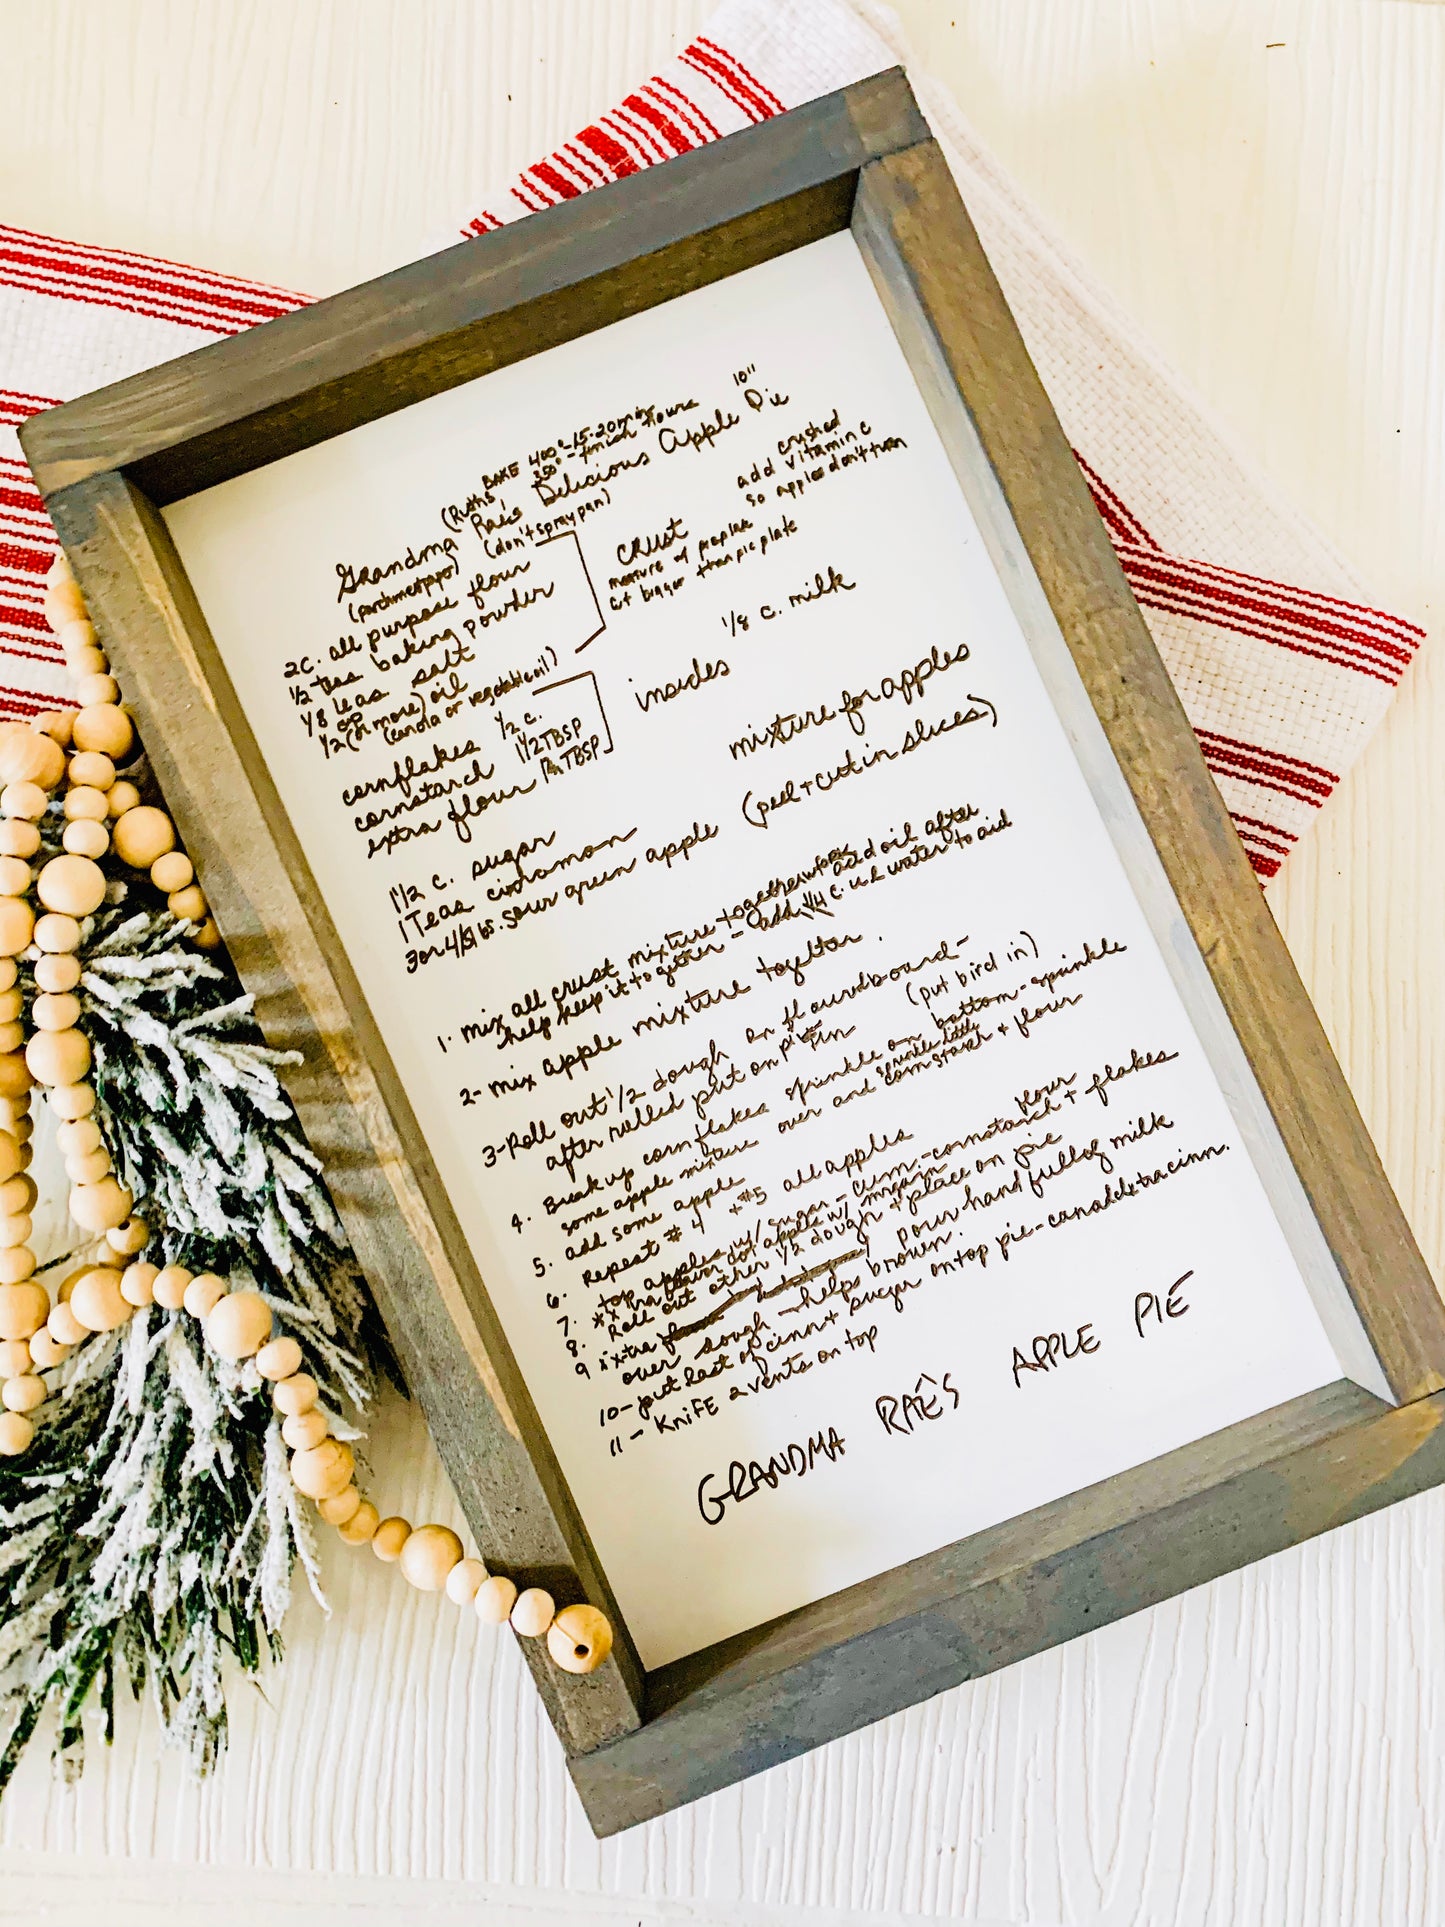 BAKE 400°-15-20min
350°- finish 1 hour
10"
(Ruths
Grandma Rae's Delicious Apple Pie
(parchment paper) (don't spray pan)
add crushed
vitamin c
so apples don't turn
2c. all purpose flour
1/2 teas baking powder
1/8 teas salt
1/2 cp (or more) oil
(canola or vegetable oil)
CRUST
measure w/ pie plate
bigger than pie plate
1/8 c. milk
cornflakes 1/2 c.
cornstarch 1 1/2 TBSP
extra flour TBSP
insides
1 1/2 c. sugar
1 Teas cinnamon
3 or 4 lbs. sour green apple (peel + cut in slices)
mixture for apples
1. mix all crust mixture together w/ fork add oil after
help keep it together - add 1/4 c. water to aid
2- mix apple mixture together.
3- Roll out 1/2 dough on floured board-
after rolled put on pie tin (put bird in)
4. Break up cornflakes sprinkle on bottom - sprinkle
some apple mixture over and sprinkle little cornstarch + flour
5. add some apple
6. Repeat #4 + #5 all apples
7. top apples w/ sugar - cinn - cornstarch + flour + flakes
**xtra flavor dot apple w/ margarin
8. Roll out other 1/2 dough + place on pie
9 xtra pour hand full of milk
over dough - helps brown.
10- put last of cinn + sugar on top pie - can add xtra cinn.
11 - KNIFE 2 vents on top
GRANDMA RAE'S APPLE PIE